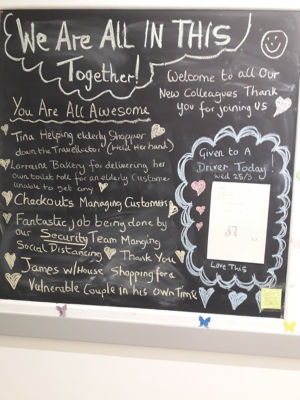 We Are All IN THIS
Together!
Welcome to all Our
New Colleagues Thank
you for joining US
You Are All Awesome
Tina Helping elderly Shopper
down the Travellator (Held Her hand)
Lorraint Bakery for delivering her
own toilet roll for an elderly Customer
Unable to get any
Checkouts Managing Customers
Fantastic job being done by
our Security Team Manging
Social Distancing
Thank You
James W/House Shopping for a
Vulnerable Couple in his own Time
Given to A
Driver Today!
Wed 25/3
Love This